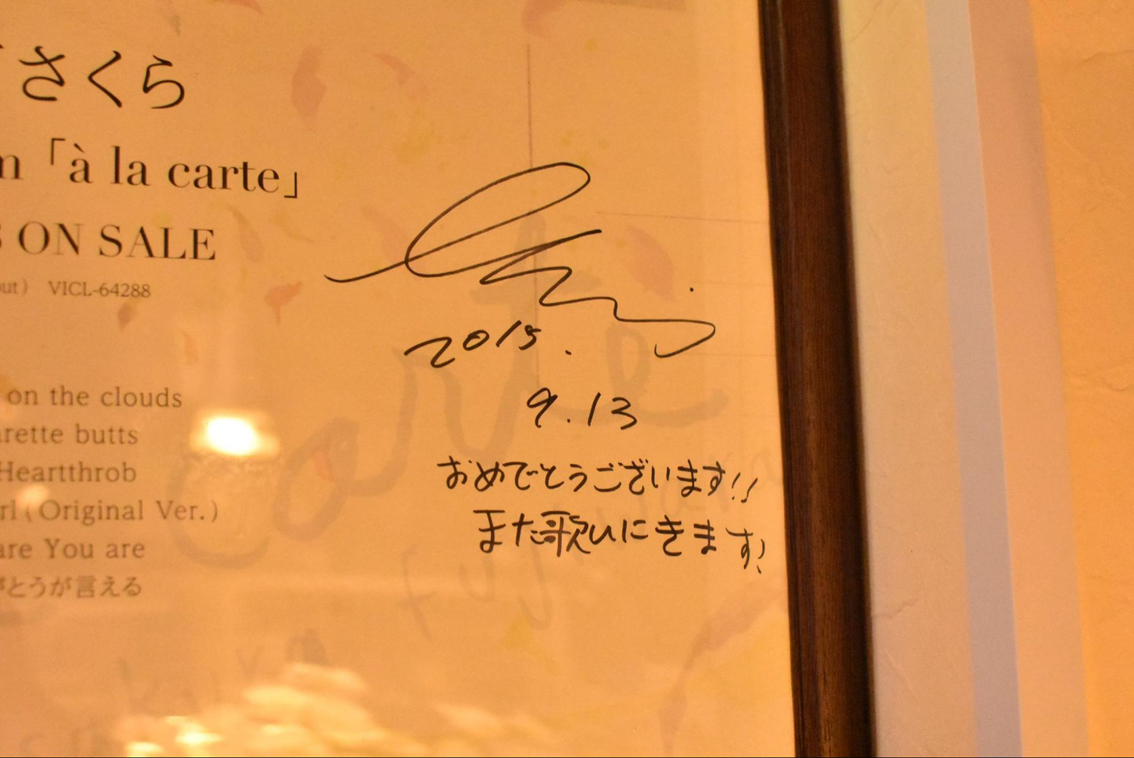 さくら
「à la carte」
ON SALE
VICL-64288
on the clouds
butts
Heartthrob
(Original Ver.)
are You are
とうが言える
2015.
9.13
おめでとうございます!!
また歌いにきます!